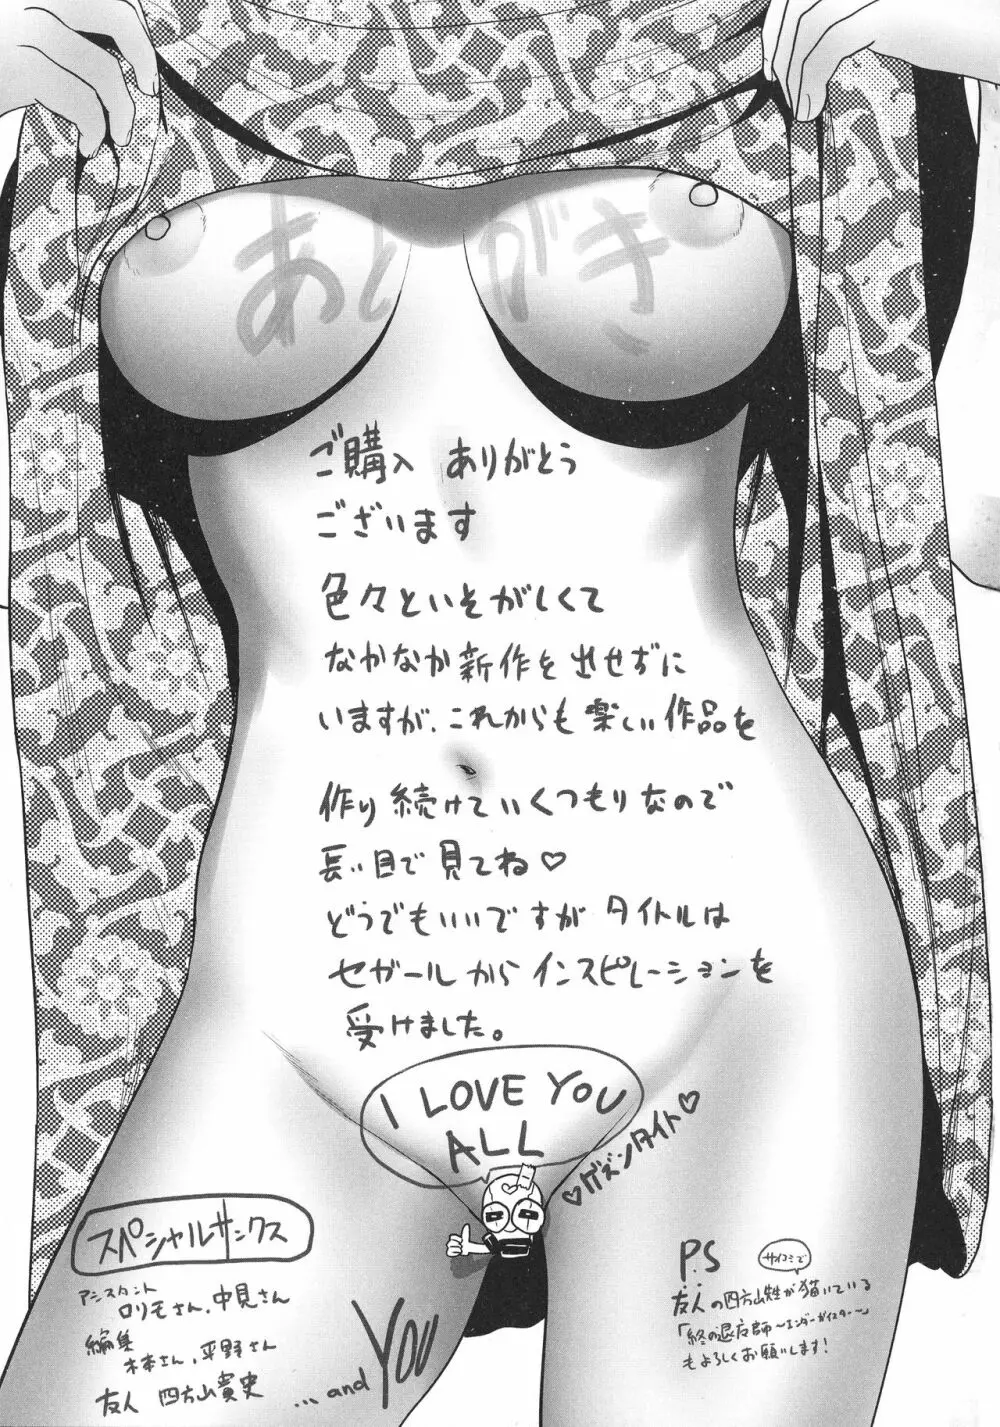 あとがき
ご購入 ありがとう
ございます
色々といそがしくて
なかなか新作を出せずに
いますが、これからも楽しい作品を
作り続けていくつもりなので
長い目で見てね♡
どうでもいいですが タイトルは
セガールからインスピレーションを
受けました。
I LOVE YOU
ALL
♡ゲズンタイト♡
スペシャルサンクス
アシスタント
ロリモさん、中見さん
編集
木本さん、平野さん
友人 四方山貴史
...and YOU
P.S
サイコミで
友人の四方山姓が描いている
「終の退女師〜エンダーガイスター〜」
もよろしくお願いします!